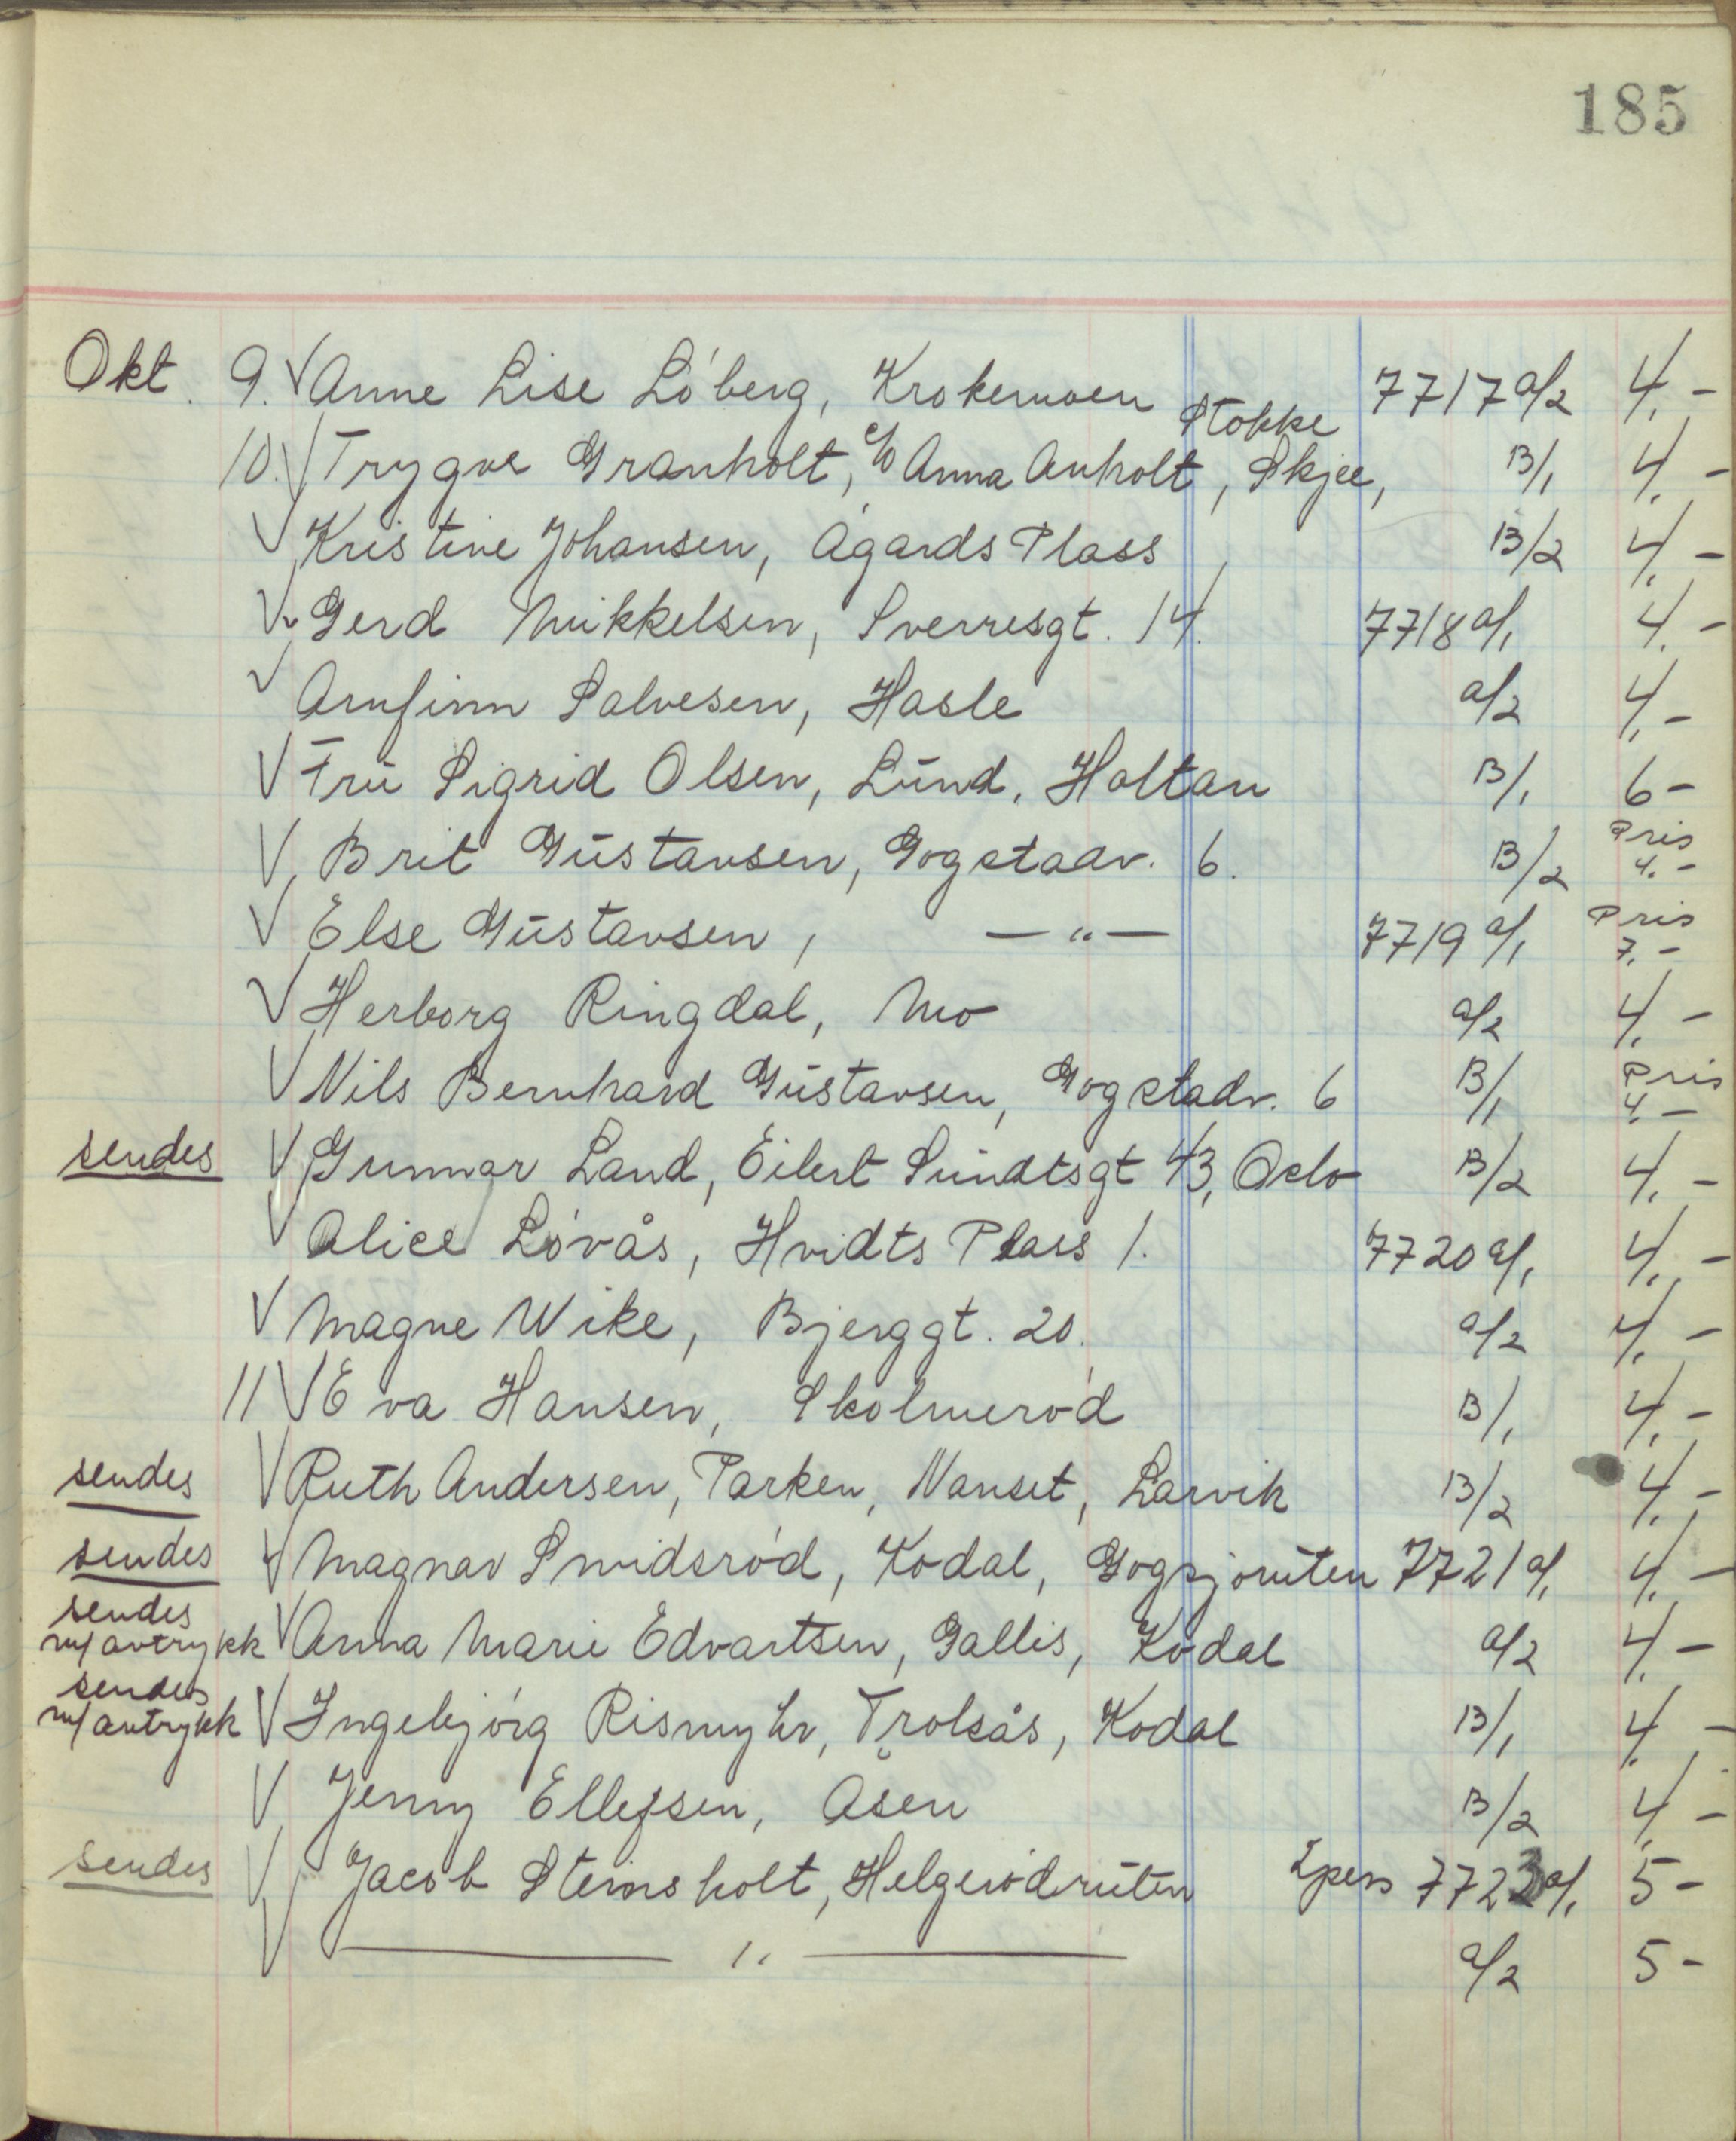 185
Okt. 9. √ Anne Lise Löberg, Krokemoen 7717 a/2 4,-
10. √ Trygve Granholt, c/o Anna Anholt, Skjee, Stokke B/1 4,-
√ Kristine Johansen, Ågards Plass B/2 4,-
√ Gerd Mikkelsen, Sverresgt. 14. 7718 a/1 4,-
√ Arnfinn Salvesen, Hasle a/2 4,-
√ Frū Sigrid Olsen, Lūnd, Holtan B/1 6-
√ Brit Gūstavsen, Gogstadv. 6. B/2 Pris 4.-
√ Else Gūstavsen, —"— 7719 a/1 Pris 7.-
√ Herborg Ringdal, Mo a/2 4,-
√ Nils Bernhard Gūstavsen, Gogstadv. 6 B/1 Pris 4.-
sendes √ Gunnar Land, Eilert Sūndtsgt 43, Oslo B/2 4,-
√ Alice Lövås, Hvidts Plass 1. 7720 a/1 4,-
√ Magne Wike, Bjerggt. 20. a/2 4,-
11 √ Eva Hansen, Skolmeröd B/1 4,-
sendes √ Ruth Andersen, Parken, Nanset, Larvik B/2 4,-
sendes √ Magnar Smidsröd, Kodal, Gogsjörūten 7721 a/1 4,-
sendes m/avtrykk √ Anna Marie Edvartsen, Gallis, Kodal a/2 4,-
sendes m/avtrykk √ Ingebjörg Rismyhr, Trolsås, Kodal B/1 4,-
√ Jenny Ellefsen, Åsen B/2 4,-
sendes √ Jacob Steinsholt, Helgerödrūten 2 pers 7723 a/1 5-
√ —"— a/2 5-